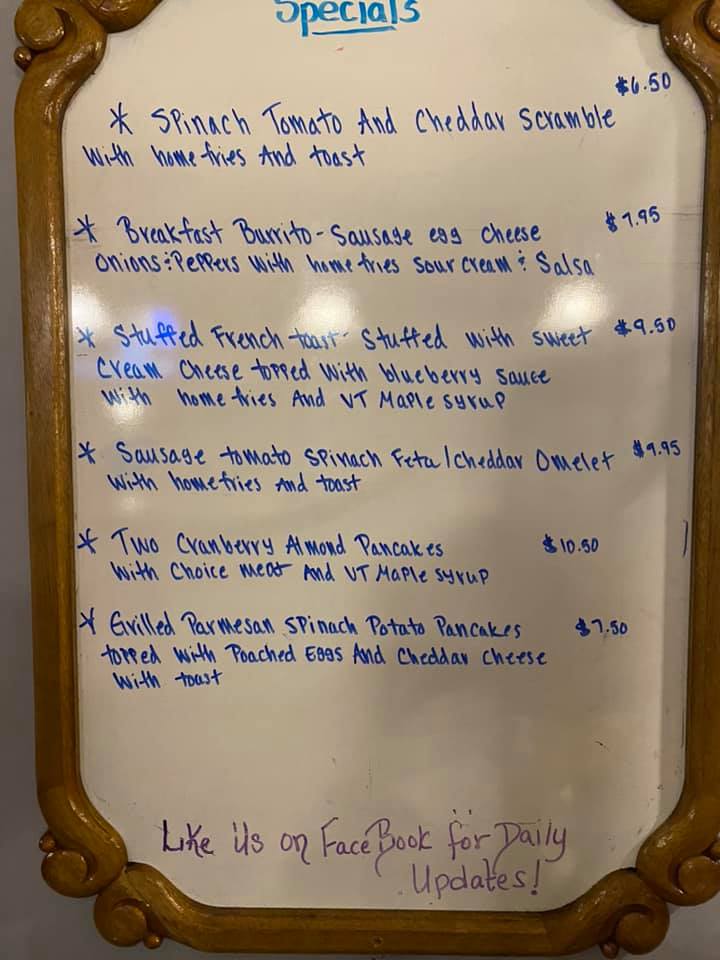 Specials
$6.50
* Spinach Tomato And Cheddar Scramble
With home fries And toast
* Breakfast Burrito - Sausage egg cheese $7.95
Onions & Peppers With home fries Sour cream & Salsa
* Stuffed French toast - Stuffed with sweet $9.50
Cream Cheese topped With blueberry sauce
With home fries And VT Maple syrup
* Sausage tomato Spinach Feta/Cheddar Omelet $9.95
With home fries And toast
* Two Cranberry Almond Pancakes $10.50
With Choice meat And VT Maple syrup
* Grilled Parmesan Spinach Potato Pancakes $7.50
topped With Poached Eggs And Cheddar Cheese
With toast
Like Us on FaceBook for Daily
Updates!